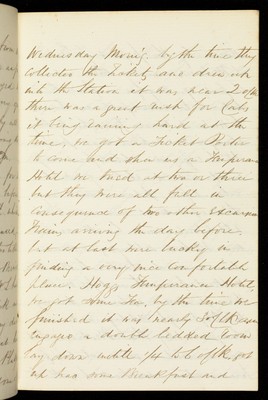 Wednesday Morng by the time they
collected the Tickets and drew up
into the Station it was near 2 oClk
there was a great rush for Cabs
it being raining hard at the
time, we got a Ticket Porter
to come and shew us a Temperance
Hotel we tried at two or three
but they were all full in
consequence of two other Excursion
Trains arriving the day before
but at last were lucky in
finding a very nice comfortable
place. Hoggs Temperance Hotel,
we got some Tea, by the time we
finished it was nearly 3 oClk
engaged a double bedded room
lay down until 1/4 to 6 oClk, got
up had some Breakfast and